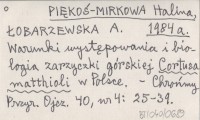 PIĘKOŚ-MIRKOWA Halina,
ŁOBARZEWSKA A. 1984a.
Warunki występowania i bio-
logia zarzyczki górskiej Cortusa
matthioli w Polsce. - Chrońmy
Przyr. Ojcz. 40, nr 4: 25-39.
BIOLOGOS